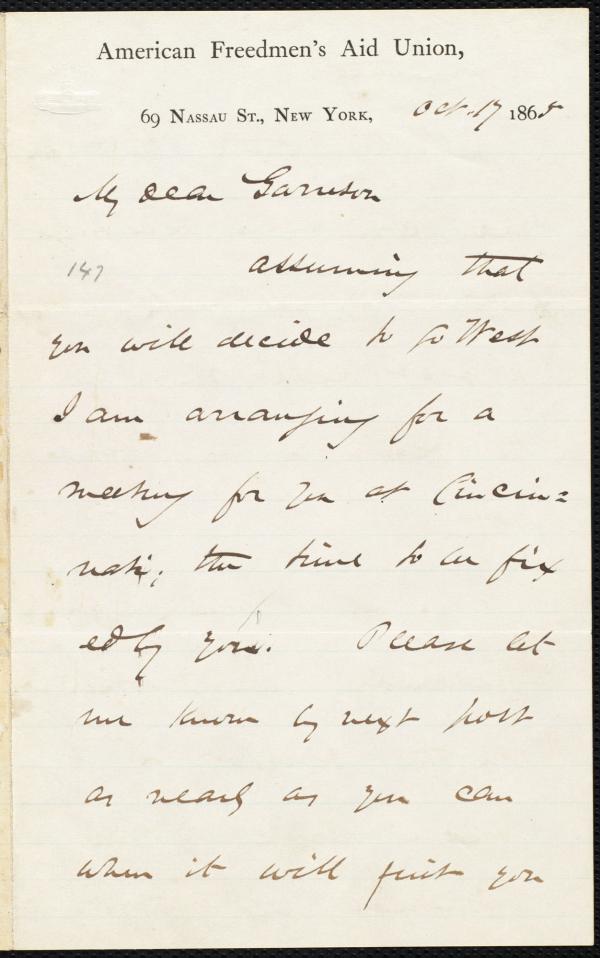 American Freedmen's Aid Union,
69 Nassau St., New York, Oct. 17 1865
My dear Garrison
147
assuming that
you will decide to go West
I am arranging for a
meeting for you at Cincin=
nati; the time to be fix
ed by you. Please let
me know by next post
as nearly as you can
when it will suit you